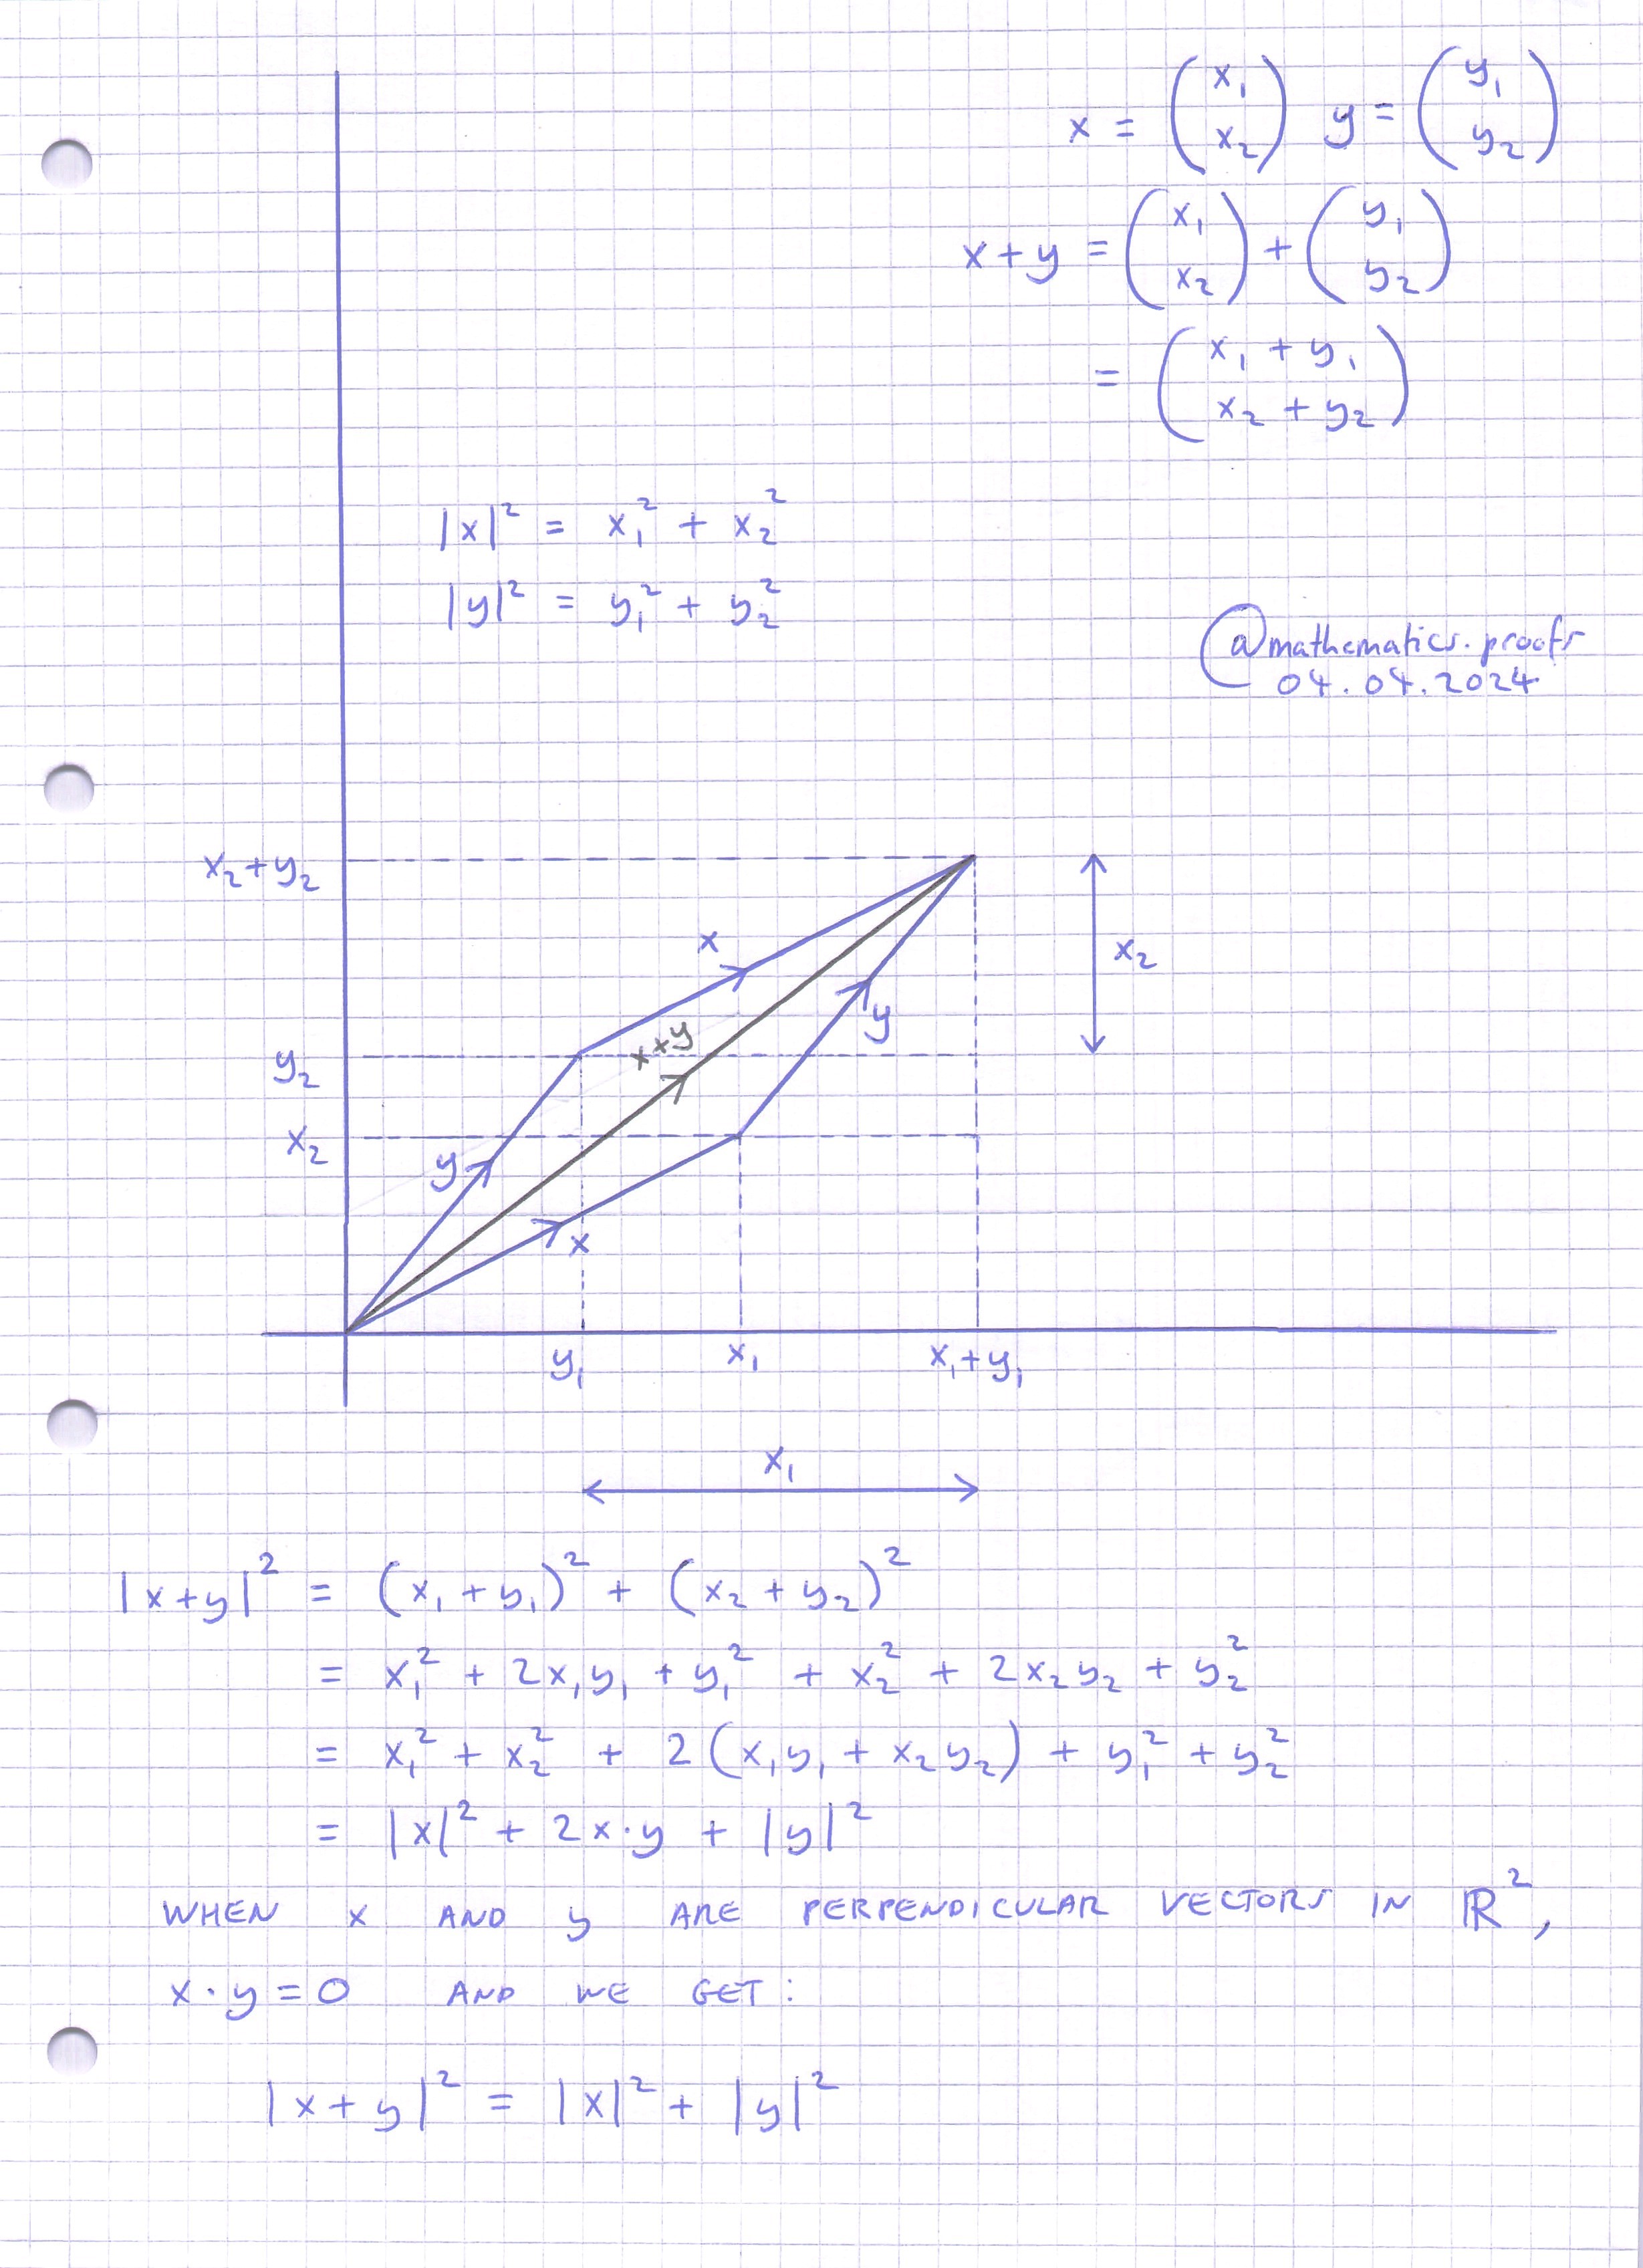 x = (x₁ x₂) y = (y₁ y₂)
x + y = (x₁ x₂) + (y₁ y₂)
= (x₁ + y₁ x₂ + y₂)
|x|² = x₁² + x₂²
|y|² = y₁² + y₂²
@mathematics.proofs
04.04.2024
x₂ + y₂
x
x₂
x + y
y
y₂
x₂
y
x
y₁
x₁
x₁ + y₁
x₁
|x + y|² = (x₁ + y₁)² + (x₂ + y₂)²
= x₁² + 2x₁y₁ + y₁² + x₂² + 2x₂y₂ + y₂²
= x₁² + x₂² + 2(x₁y₁ + x₂y₂) + y₁² + y₂²
= |x|² + 2x·y + |y|²
WHEN x AND y ARE PERPENDICULAR VECTORS IN ℝ²,
x·y = 0 AND WE GET:
|x + y|² = |x|² + |y|²